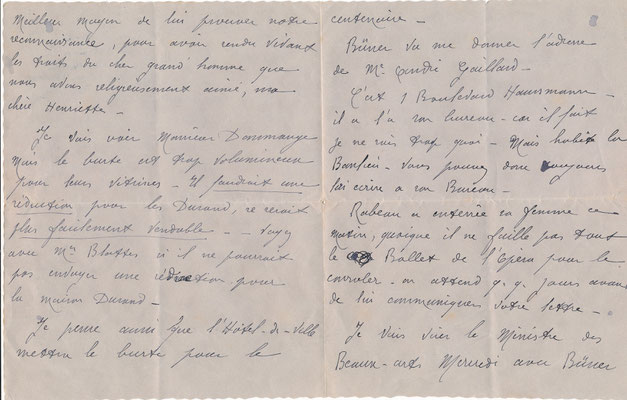 Meilleur moyen de lui prouver notre
reconnaissance, pour avoir rendu vivant
les traits du cher grand homme que
nous avons religieusement aimé, ma
chère Henriette -
Je vais voir Monsieur Dommange
mais le buste est trop volumineux
pour leurs vitrines - Il faudrait une
réduction pour les Durand, ce serait
plus facilement vendable - - Voyez
avec Mr si il ne pourrait
pas envoyer une réduction pour
la maison Durand -
Je pense aussi que l'Hôtel-de-Ville
mettra le buste pour le
centenaire -
Büsser va me donner l'adresse
de Mr André Gaillard -
C'est 1 Boulevard Haussmann -
il a là son bureau - car il fait
je ne sais trop quoi - Mais habite la
Banlieue - Vous pouvez donc toujours
lui écrire à son Bureau -
Rabeau a enterrée sa femme ce
matin, quoique il ne faille pas tout
le Ballet de l'Opéra pour le
consoler - on attend q.q. jours avant
de lui communiquer votre lettre -
Je vais voir le Ministre des
Beaux-arts Mercredi avec Büsser